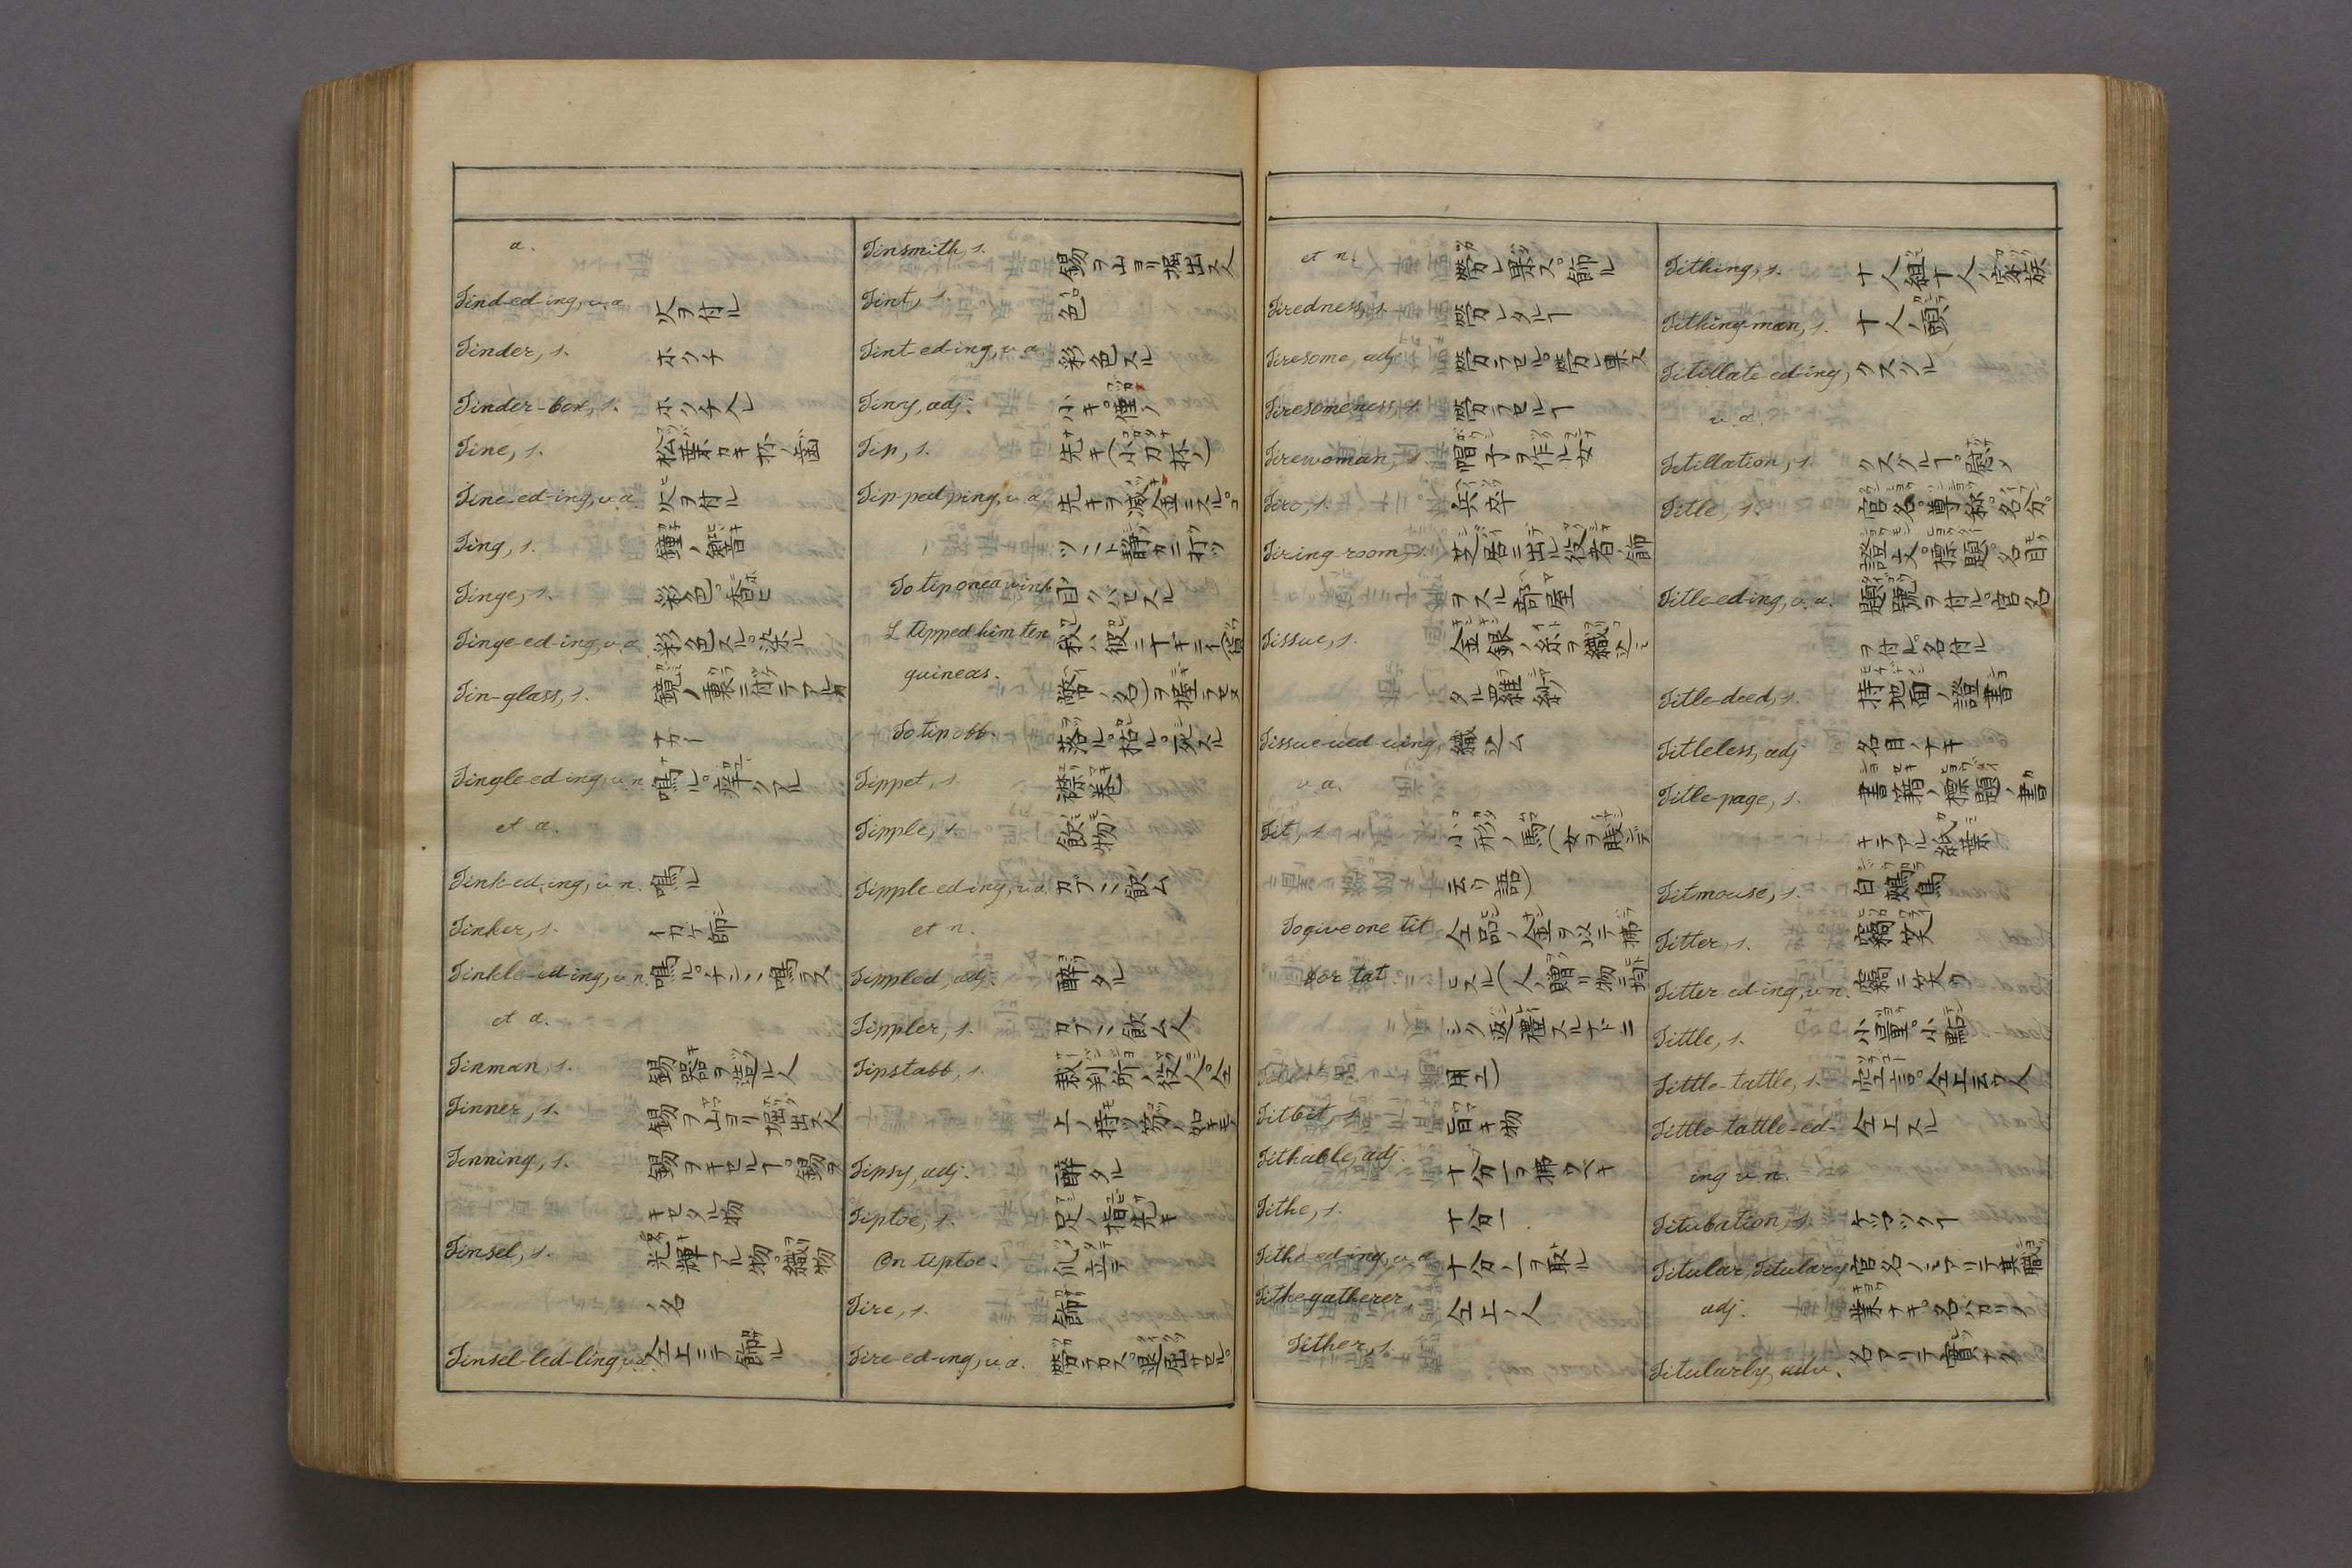 a.
Tind-ed-ing, v.a. 火ヲ付ル
Tinder, s. ホクチ
Tinder-box, s. ホクチ入レ
Tine, s. 松葉カキ杯ノ歯
Tine-ed-ing, v.a. 火ヲ付ル
Ting, s. 鐘ノ響音
Tinge, s. 彩色。香ヒ
Tinge-ed-ing, v.a. 彩色スル。染ル
Tin-glass, s. 鏡ノ裏ニ付テアル
Tingle-ed-ing, v.n. 鳴ル。
et a.
Tink-ed-ing, v.n. 鳴ル
Tinker, s. イカケ師
Tinkle-ed-ing, v.n. 鳴ル。
et a.
Tinman, s. 錫器ヲ造ル人
Tinner, s. 錫ヲ山ヨリ堀出ス人
Tinning, s. 錫ヲキセルヿ。錫ヲ
キセタル物
Tinsel, s. 光輝アル物。織物
ノ名
Tinsel-led-ling, v.a. 仝上ニテ飾ル
Tinsmith, s. 錫ヲ山ヨリ堀出ス人
Tint, s. 色
Tint-ed-ing, v.a. 彩色スル
Tiny, adj. 小キ。僅ノ
Tip, s. 先キ(小刀杯ノ)
Tip-ped-ping, v.a. 先キヲ滅金スル。コ
ツ〻ト静カニ打ツ
To tip one a wink 目クバセスル
I tipped him ten 我ハ彼ニ十ギニー(
guineas. 幣ノ名)ヲ握ラセタ
To tip off. 落ル。枯ル。死スル
Tippet, s. 襟巻
Tipple, s. 飲物
Tipple-ed-ing, v.a. ガブ〻飲ム
et n.
Tippled, adj. 酔タル
Tippler, s. ガブ〻飲ム人
Tipstaff, s. 裁判所ノ役人。仝
上ノ持ツ
Tipsy, adj. 酔タル
Tiptoe, s. 足ノ指先キ
On tiptoe. 爪立テ
Tire, s. 飾
Tire-ed-ing, v.a. 労ラカス。退屈サセル。
et n. 労レ果ス。飾ル
Tiredness, s. 労レタルヿ
Tiresome, adj. 労ラセル。労レ果ス
Tiresomeness, s. 労ラセルヿ
Tirewoman, s. 帽子ヲ作ル女
Tiro, s. 兵卒
Tiring-room, s. 芝居ニ出ル役者ノ飾
ヲスル部屋
Tissue, s. 金銀ノ糸ヲ織込ミ
タル羅紗
Tissue-ued-uing, 織込ム
v.a.
Tit, s. 小形ノ馬(女ヲ賤シテ
云フ語)
To give one tit 仝品ノ金ヲ以テ拂
for tat. ヒスル(人ノ贈リ物ニ均
シク返禮スルナドニ
用ユ)
Titbit, s. 旨キ物
Tithable, adj. 十分一ヲ拂フベキ
Tithe, s. 十分一
Tithe-ed-ing, v.a. 十分ノ一ヲ取ル
Tithe-gatherer, 仝上ノ人
Tither, s.
Tithing, s. 十人組十人ノ家族
Tithing-man, s. 十人ノ頭
Titillate-ed-ing, クスグル
v.a.
Titillation, s. クスグルヿ。慰メ
Title, s. 官名。尊称。名分。
證文。標題。名目
Title-ed-ing, v.a. 題號ヲ付ル。官名
ヲ付ル。名付ル
Title-deed, s. 持地面ノ證書
Titleless, adj. 名目ノナキ
Title-page, s. 書籍ノ標題ノ書
キテアル紙葉
Titmouse, s. 白鵐鳥
Titter, s. 竊笑
Titter-ed-ing, v.n. 竊ニ笑フ
Tittle, s. 小量。小點
Tittle-tattle, s. 空言。仝上云フ人
Tittle-tattle-ed- 仝上スル
ing v.n.
Titubation, s. ケツマヅクヿ
Titular, Titulary 官名ノミアリテ其職
adj. 業ナキ。名バカリノ
Titularly, adv. 名アリテ實ナク